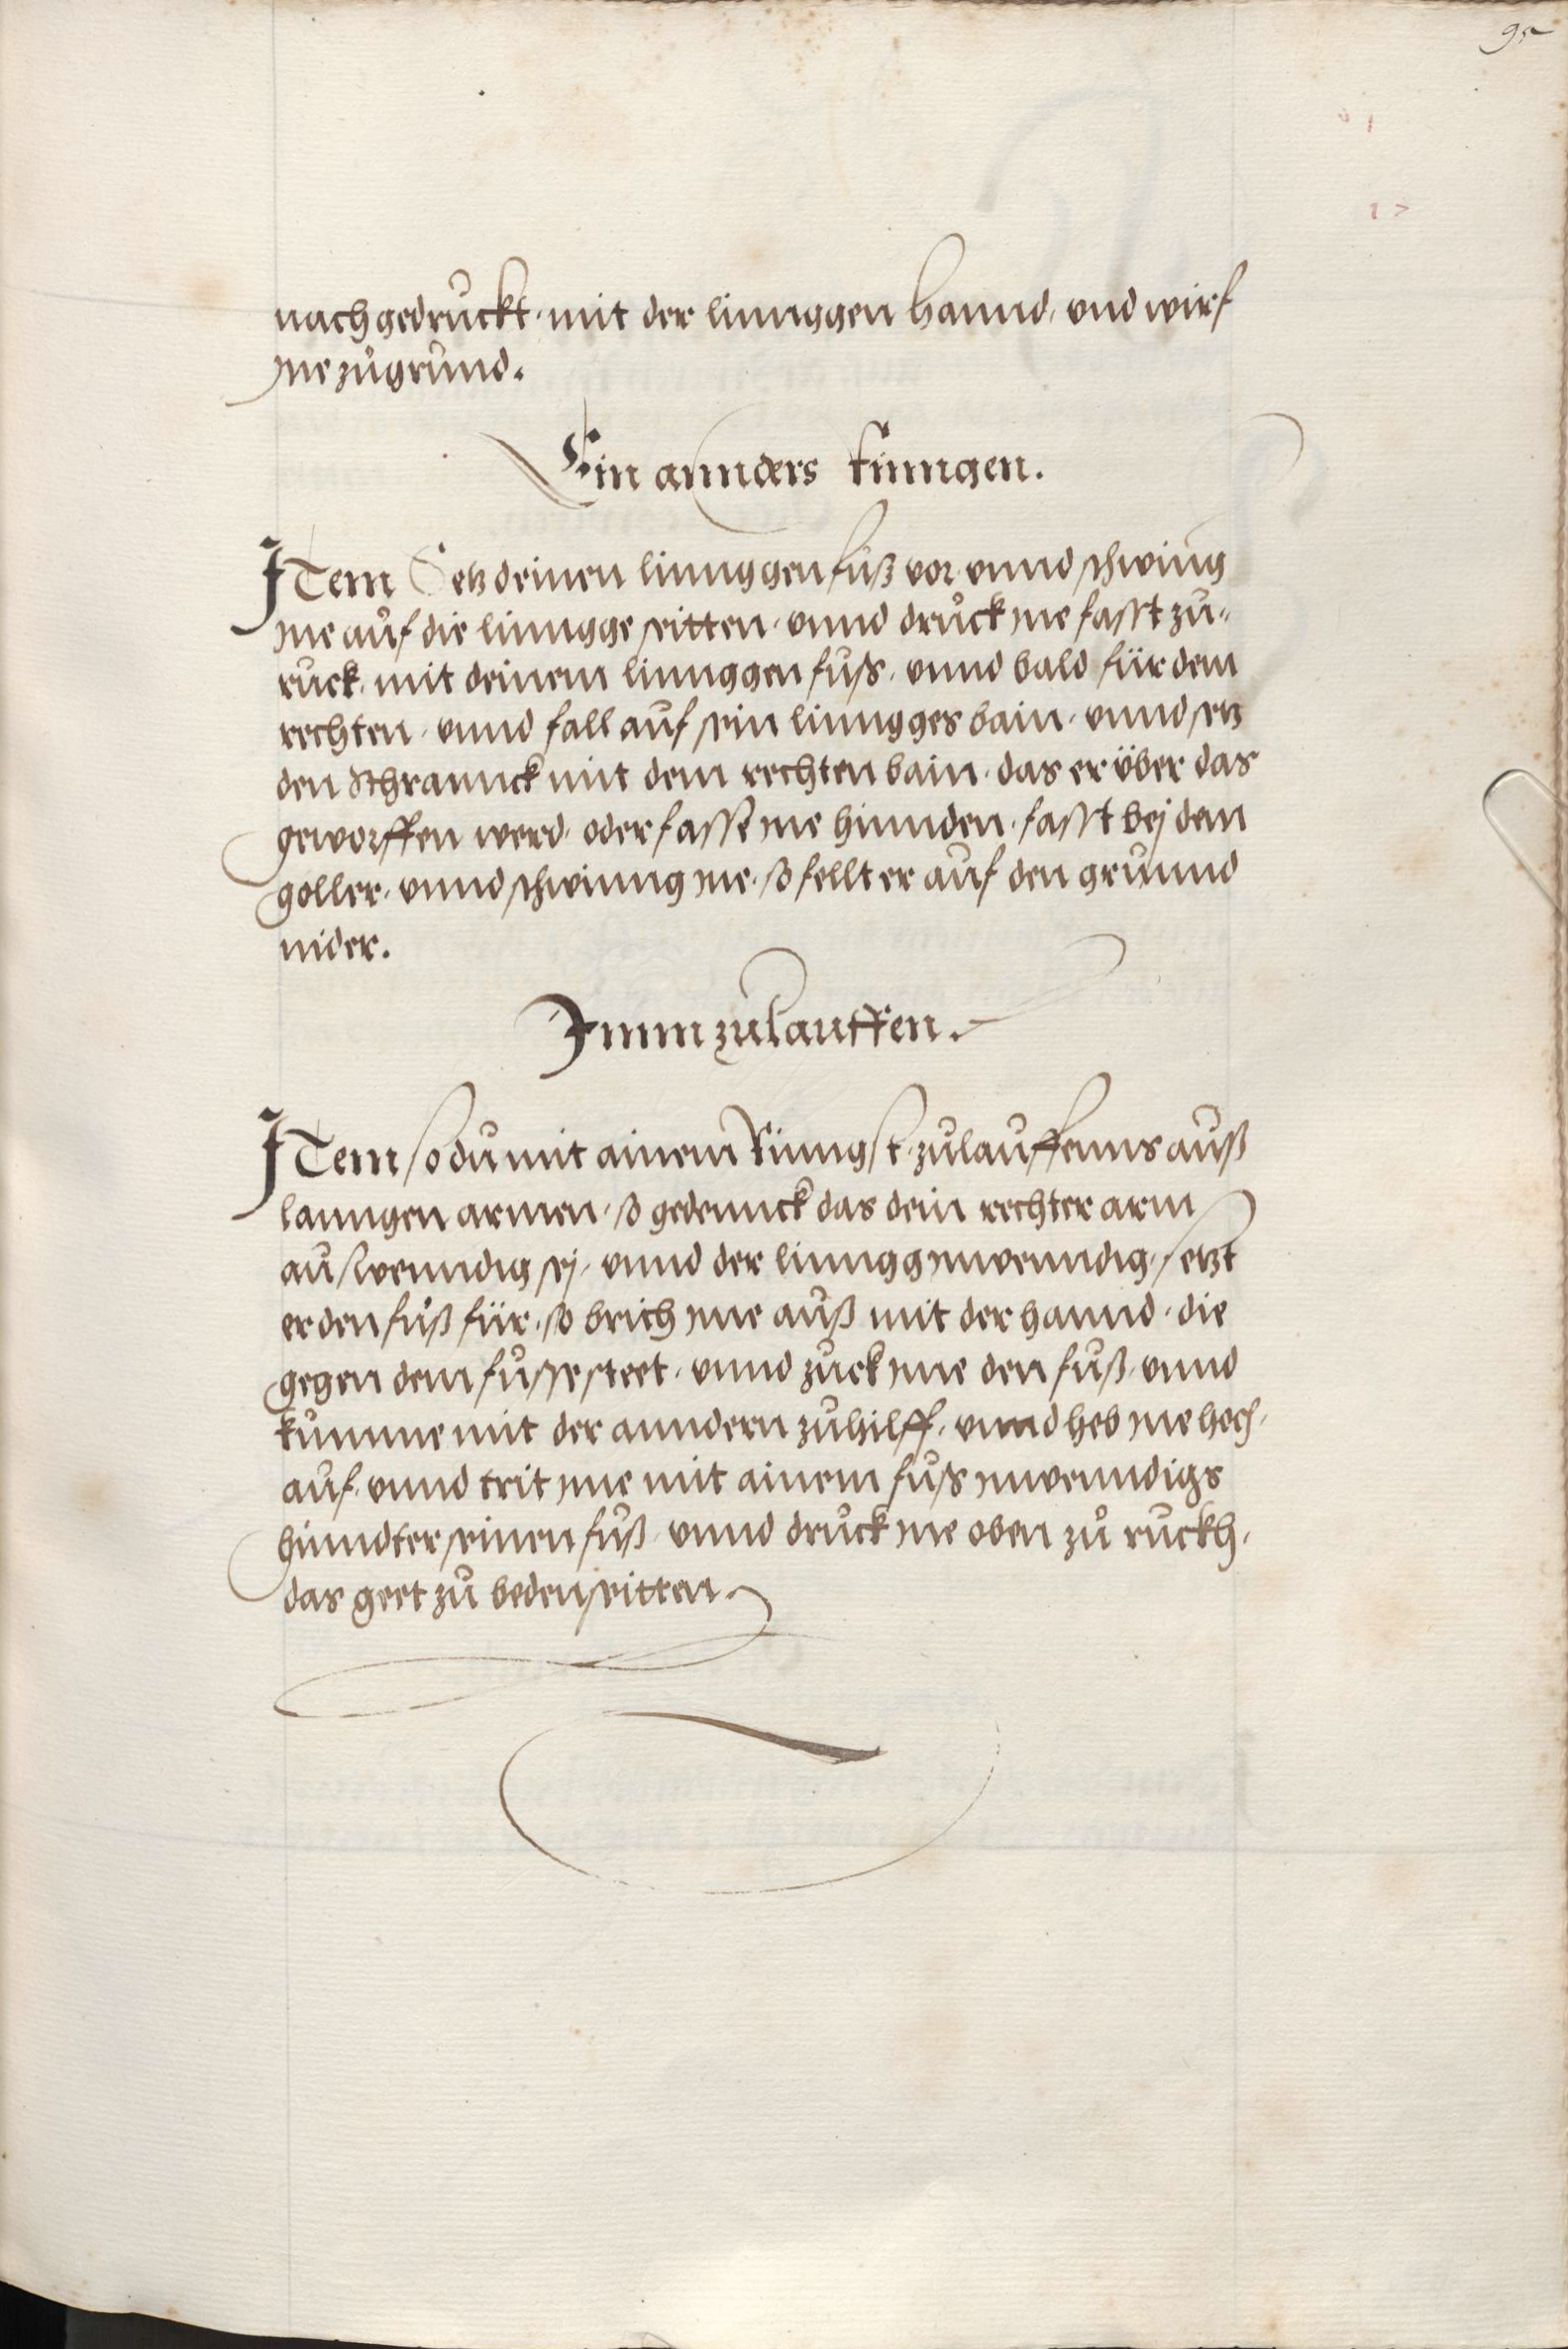 95
nachgedruckt, mit der linnggen hannd, vnd wirf
yne zůgrund.
Ein annders Ringen.
ITem Setz deinen linnggen fůß vor vnnd schwing
yne auf die linngge seitten, vnnd druck yne fasst zu-
ruck, mit deinem linnggen fuß, vnnd bald für dem
rechten, vnnd fall auf sein linngges bain, vnnd setz
den Schrannck mit dem rechten bain, das er über das
geworffen werd, oder fasse yne hinnden, fasst bej dem
goller, vnnd schwinng yne, so fellt er auf den grunnd
nider.
Imm zulauffen.
ITem so du mit ainem Ringst, zulauffenns auß
lanngen armen, so gedennck das dein rechter arm
auswenndig sej, vnnd der linngg ynwenndig, setzt
er den fůß für, so brich yme auß mit der hannd, die
gegen dem fůsse steet, vnnd zuck yme den fuß, vnnd
kumme mit der anndern zuhilff, vnnd heb yne hoch
auf, vnnd trit yme mit ainem fuß ynwenndigs
hinndter seinen fůß, vnnd druck yne oben zů ruckh,
das geet zů beden seitten.